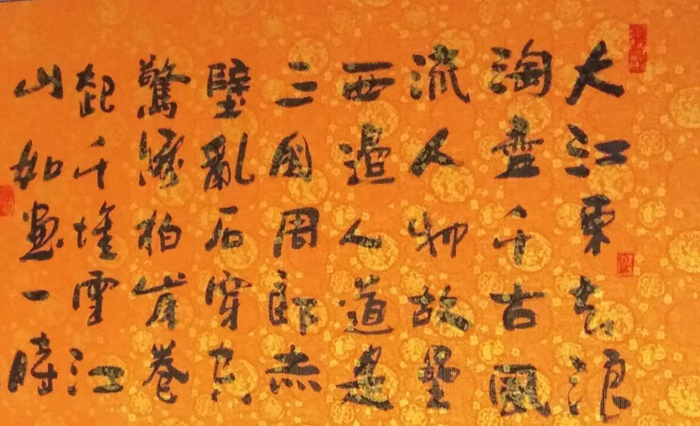 大江東去浪
淘盡千古風
流人物故壘
西邊人道是
三國周郎赤
壁亂石穿空
驚濤拍岸卷
起千堆雪江
山如畫一時